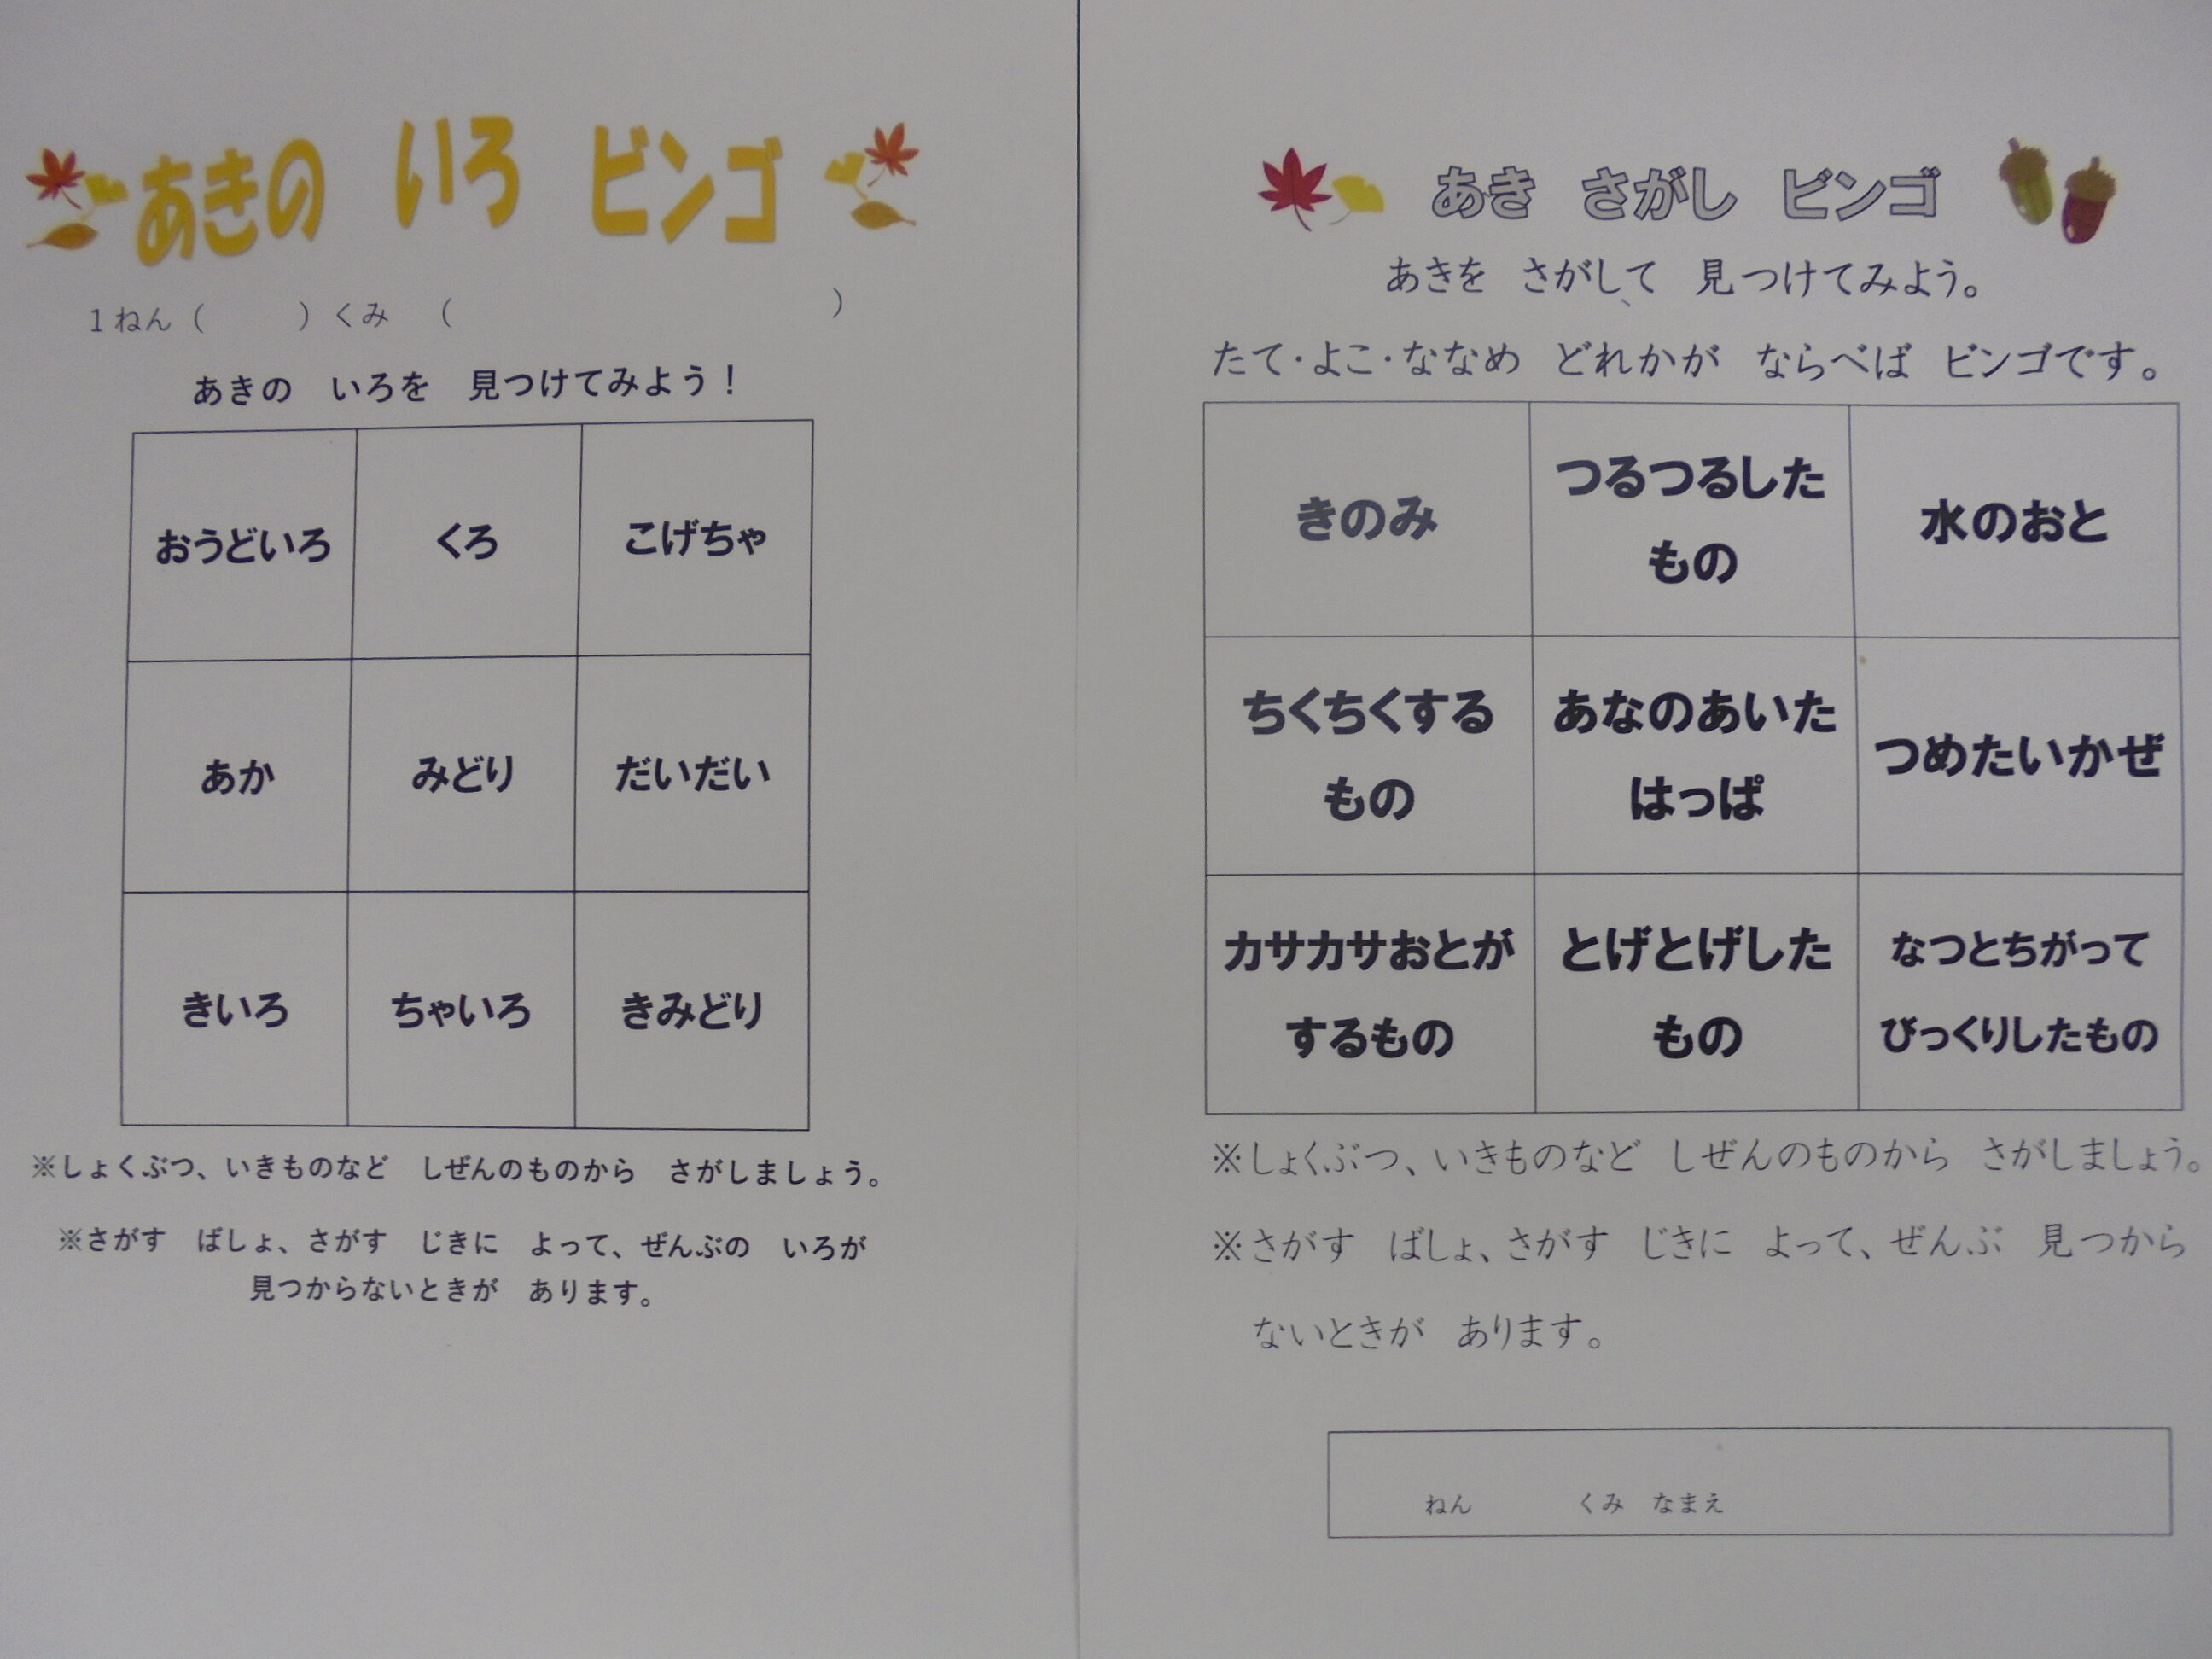 あきの　いろ　ビンゴ
1ねん（　　　）くみ　（　　　　　　　　　　　　）
あきの　いろを　見つけてみよう！
おうどいろ　くろ　こげちゃ
あか　みどり　だいだい
きいろ　ちゃいろ　きみどり
※しょくぶつ、いきものなど　しぜんのものから　さがしましょう。
※さがす　ばしょ、さがす　じきに　よって、ぜんぶの　いろが
見つからないときが　あります。
あき　さがし　ビンゴ
あきを　さがして　見つけてみよう。
たて・よこ・ななめ　どれかが　ならべば　ビンゴです。
きのみ
つるつるした
もの
水のおと
ちくちくする
もの
あなのあいた
はっぱ
つめたいかぜ
カサカサおとが
するもの
とげとげした
もの
なつとちがって
びっくりしたもの
※しょくぶつ、いきものなど　しぜんのものから　さがしましょう。
※さがす　ばしょ、さがす　じきに　よって、ぜんぶ　見つから
ないときが　あります。
ねん　　　　くみ　なまえ